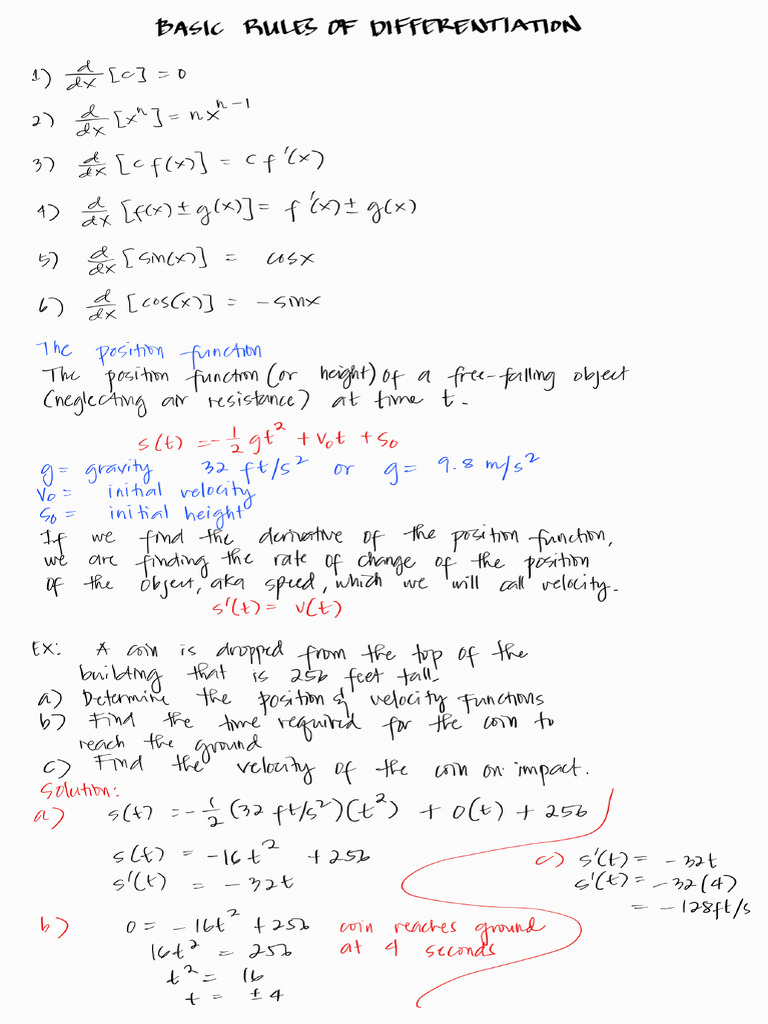 BASIC RULES OF DIFFERENTIATION
1) d/dx [c] = 0
2) d/dx [xⁿ] = nxⁿ⁻¹
3) d/dx [c f(x)] = c f'(x)
4) d/dx [f(x) ± g(x)] = f'(x) ± g(x)
5) d/dx [sin(x)] = cosx
6) d/dx [cos(x)] = -sinx
The position function
The position function (or height) of a free-falling object
(neglecting air resistance) at time t.
s(t) = -1/2 gt² + v₀t + s₀
g = gravity 32 ft/s² or g = 9.8 m/s²
v₀ = initial velocity
s₀ = initial height
If we find the derivative of the position function,
we are finding the rate of change of the position
of the object, aka speed, which we will call velocity.
s'(t) = v(t)
EX: A coin is dropped from the top of the
building that is 256 feet tall.
a) Determine the position & velocity functions
b) Find the time required for the coin to
reach the ground
c) Find the velocity of the coin on impact.
Solution:
a) s(t) = -1/2 (32 ft/s²)(t²) + 0(t) + 256
s(t) = -16t² + 256
s'(t) = -32t
b) 0 = -16t² + 256 coin reaches ground
16t² = 256 at 4 seconds
t² = 16
t = ±4
c) s'(t) = -32t
s'(t) = -32(4)
= -128ft/s